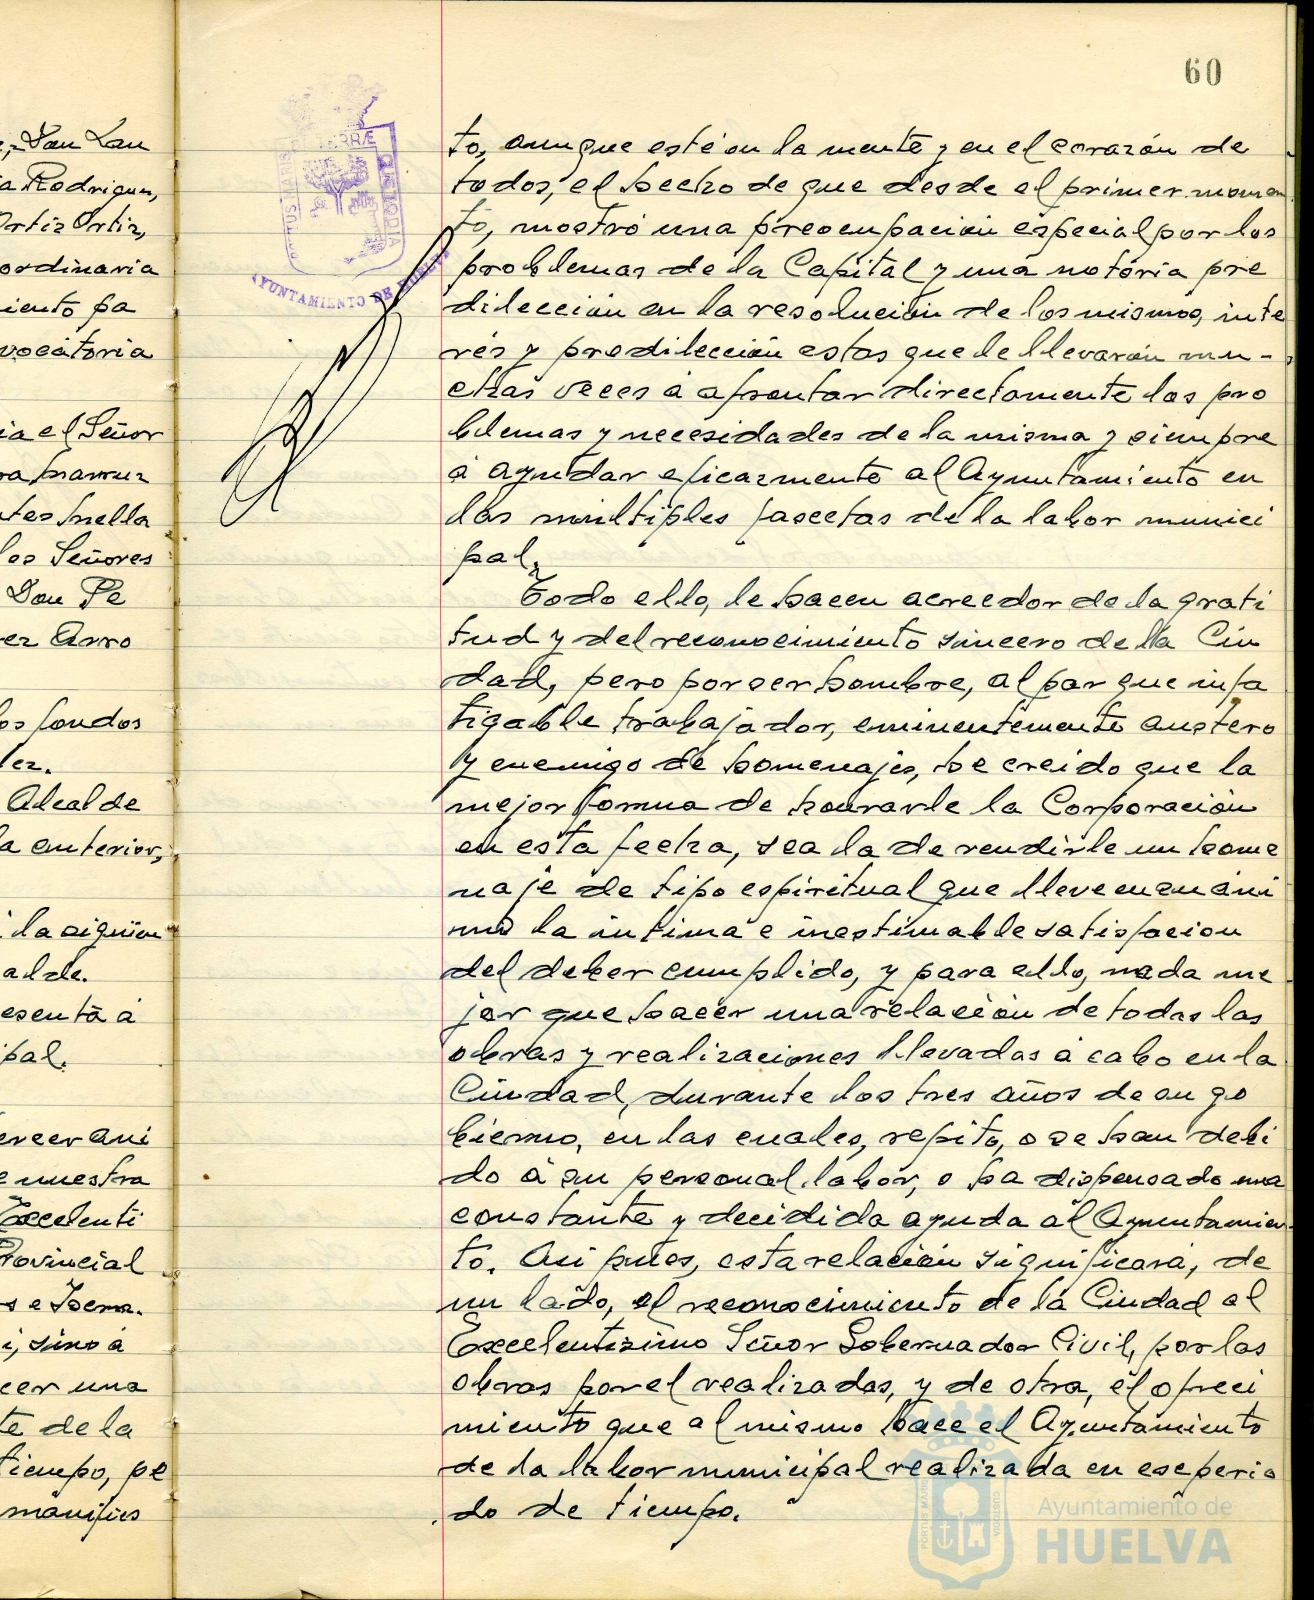 60
San Lau
a Rodriguez,
Ortiz Ortiz,
ordinaria
iento pa
vocatoria
ia el Señor
los Señores
Don Pe
ez Arro
los fondos
lez.
Alcalde
la anterior,
la siguien
alde.
esenta á
ipal.
ercer ani
e nuestra
Excelenti
Provincial
i, sino á
cer una
te de la
tiempo, pe
manifies
PORTUS MARIS
TERRÆ
CUSTODIA
AYUNTAMIENTO DE HUELVA
to, aunque esté en la mente y en el corazón de
todos, el hecho de que desde el primer momen
to, mostró una preocupación especial por los
problemas de la Capital y una notória pre
dilección en la resolución de los mismos, inte
rés y predilección estas que le llevarón mu-
chas veces á afrontar directamente los pro
blemas y necesidades de la misma y siempre
á ayudar eficazmente al Ayuntamiento en
las multiples fascetas de la labor munici
pal.
Todo ello, le hacen acreedor de la grati
tud y del reconocimiento sincero de la Ciu
dad, pero por ser hombre, al par que infa
tigable trabajador, eminentemente austero
y enemigo de homenajes, he creido que la
mejor forma de honrarle la Corporación
en esta fecha, sea la de rendirle un home
naje de tipo espiritual que lleve en su áni
mo la intima e inestimable satisfacion
del deber cumplido, y para ello, nada me
jor que hacer una relación de todas las
obras y realizaciones llevadas á cabo en la
Ciudad, durante los tres años de su go
bierno, en las cuales, repito, o se han debi
do á su personal labor, o ha dispensado una
constante y decidida ayuda al Ayuntamien
to. Asi pues, esta relación significará, de
un lado, el reconocimiento de la Ciudad al
Excelentisimo Señor Gobernador Civil, por las
obras por el realizadas, y de otra, el ofreci
miento que al mismo hace el Ayuntamiento
de la labor municipal realizada en ese perio
do de tiempo.
PORTUS MARIS
CUSTODIA
Ayuntamiento de
HUELVA